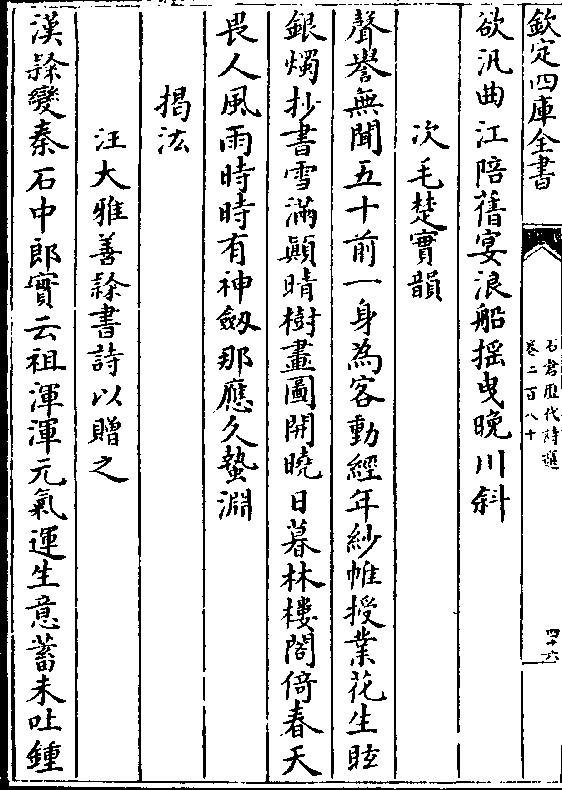 欽定四庫全書
石倉歷代詩選
卷二百八十
四十六
欲汎曲江陪舊宴浪船揺曳晚川斜
次毛楚實韻
聲譽無聞五十前一身為客動經年紗帷授業花生眩
銀燭抄書雪滿顚晴樹畫圖開曉日暮林樓閣倚春天
畏人風雨時時有神劔那應久蟄淵
揭汯
汪大雅善隸書詩以贈之
漢隸變秦石中郎實云祖渾渾元氣運生意蓄未吐鍾